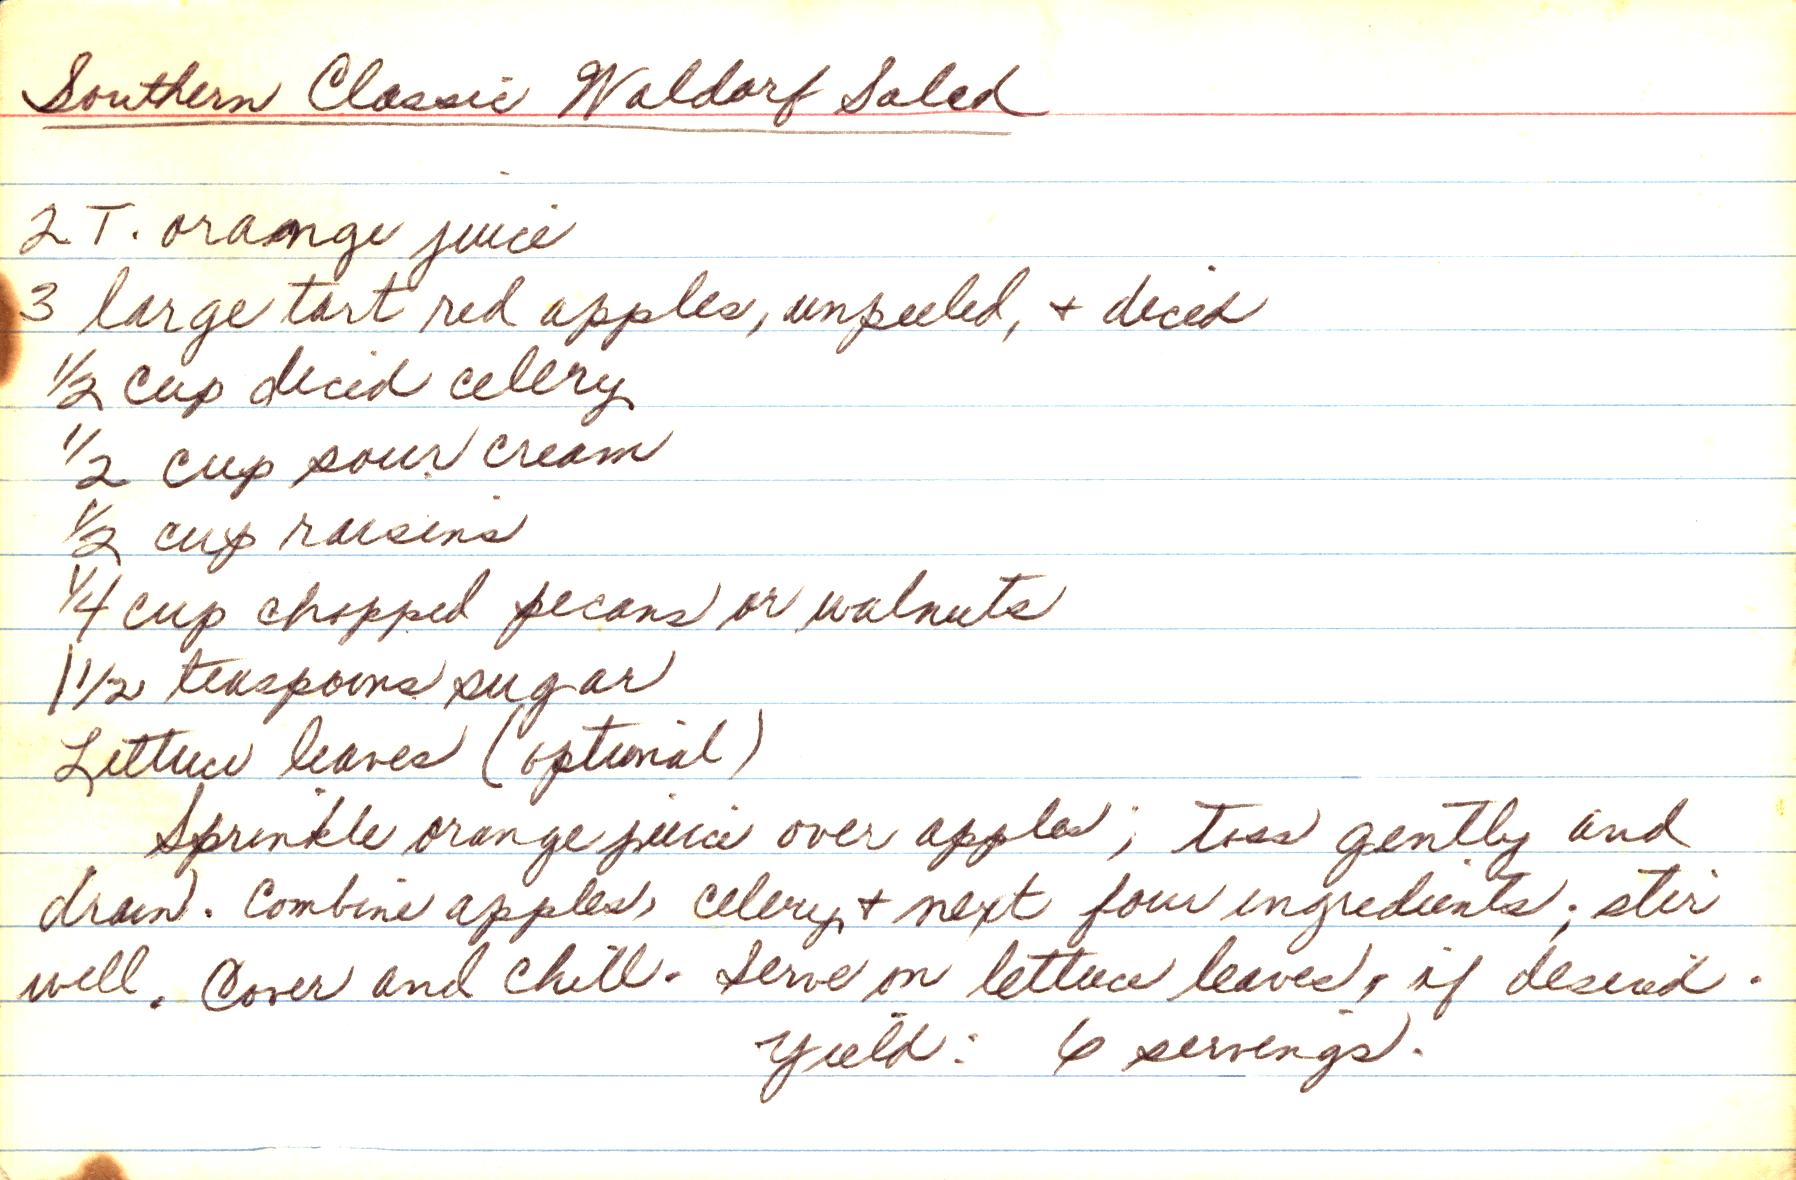 Southern Classic Waldorf Salad
2 T. orange juice
3 large tart red apples, unpeeled, + diced
1/2 cup diced celery
1/2 cup sour cream
1/2 cup raisins
1/4 cup chopped pecans or walnuts
1 1/2 teaspoons sugar
Lettuce leaves (optional)
Sprinkle orange juice over apples; toss gently and
drain. Combine apples, celery, + next four ingredients; stir
well. Cover and chill. Serve on lettuce leaves, if desired.
Yield: 6 servings.